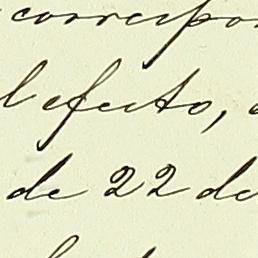 correspon
l efecto,
de 22 de